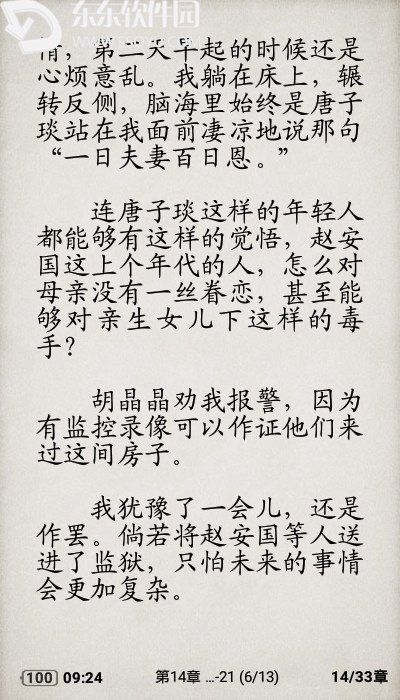 东东软件园
情，第二天早起的时候还是
心烦意乱。我躺在床上，辗
转反侧，脑海里始终是唐子
琰站在我面前凄凉地说那句
“一日夫妻百日恩。”
连唐子琰这样的年轻人
都能够有这样的觉悟，赵安
国这上个年代的人，怎么对
母亲没有一丝眷恋，甚至能
够对亲生女儿下这样的毒
手？
胡晶晶劝我报警，因为
有监控录像可以作证他们来
过这间房子。
我犹豫了一会儿，还是
作罢。倘若将赵安国等人送
进了监狱，只怕未来的事情
会更加复杂。
100 09:24 第14章 ...-21 (6/13) 14/33章